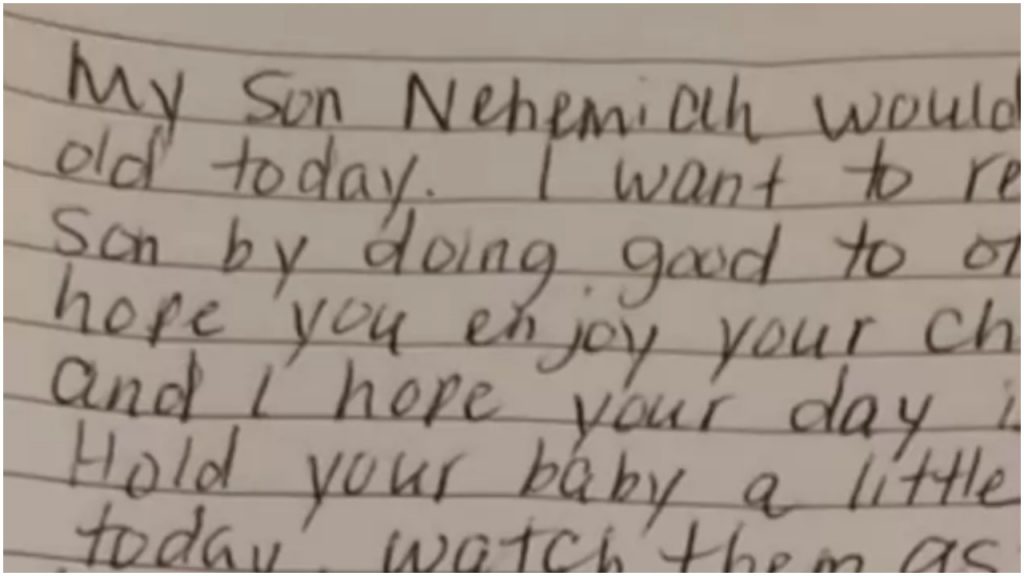 My Son Nehemiah would
old today. I want to re
son by doing good to ot
hope you enjoy your ch
and I hope your day i
Hold your baby a little
today. watch them as